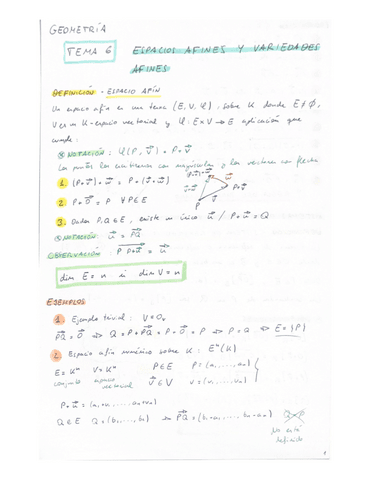 GEOMETRÍA
TEMA 6 ESPACIOS AFINES Y VARIEDADES
AFINES
DEFINICIÓN - ESPACIO AFÍN
Un espacio afín es una terna (E, V, φ) sobre K donde E ≠ ∅,
V es un K-espacio vectorial y φ: E×V → E aplicación que
cumple:
NOTACIÓN: φ(P, v⃗) = P + v⃗
Los puntos los escribiremos con mayúsculas y los vectores con flecha
1. (P+v⃗)+w⃗ = P+(v⃗+w⃗)
2. P+0⃗ = P ∀P∈E
3. Dados P,Q∈E, existe un único u⃗ / P+u⃗ = Q
NOTACIÓN: u⃗ = PQ⃗
OBSERVACIÓN: P P+u⃗ = u⃗
dim E = n si dim V = n
EJEMPLOS
1. Ejemplo trivial: V = 0
PQ⃗ = 0⃗ ⇒ Q = P + PQ⃗ = P + 0⃗ = P ⇒ P = Q ⇒ E = {P}
2. Espacio afín numérico sobre K: Eⁿ(K)
E = Kⁿ V = Kⁿ P∈E P = (a₁, ..., aₙ)
conjunto espacio vectorial v⃗∈V v = (v₁, ..., vₙ)
P + v⃗ = (a₁+v₁, ..., aₙ+vₙ)
Q∈E Q = (b₁, ..., bₙ) ⇒ PQ⃗ = (b₁-a₁, ..., bₙ-aₙ) Q - P
No está
definido
1